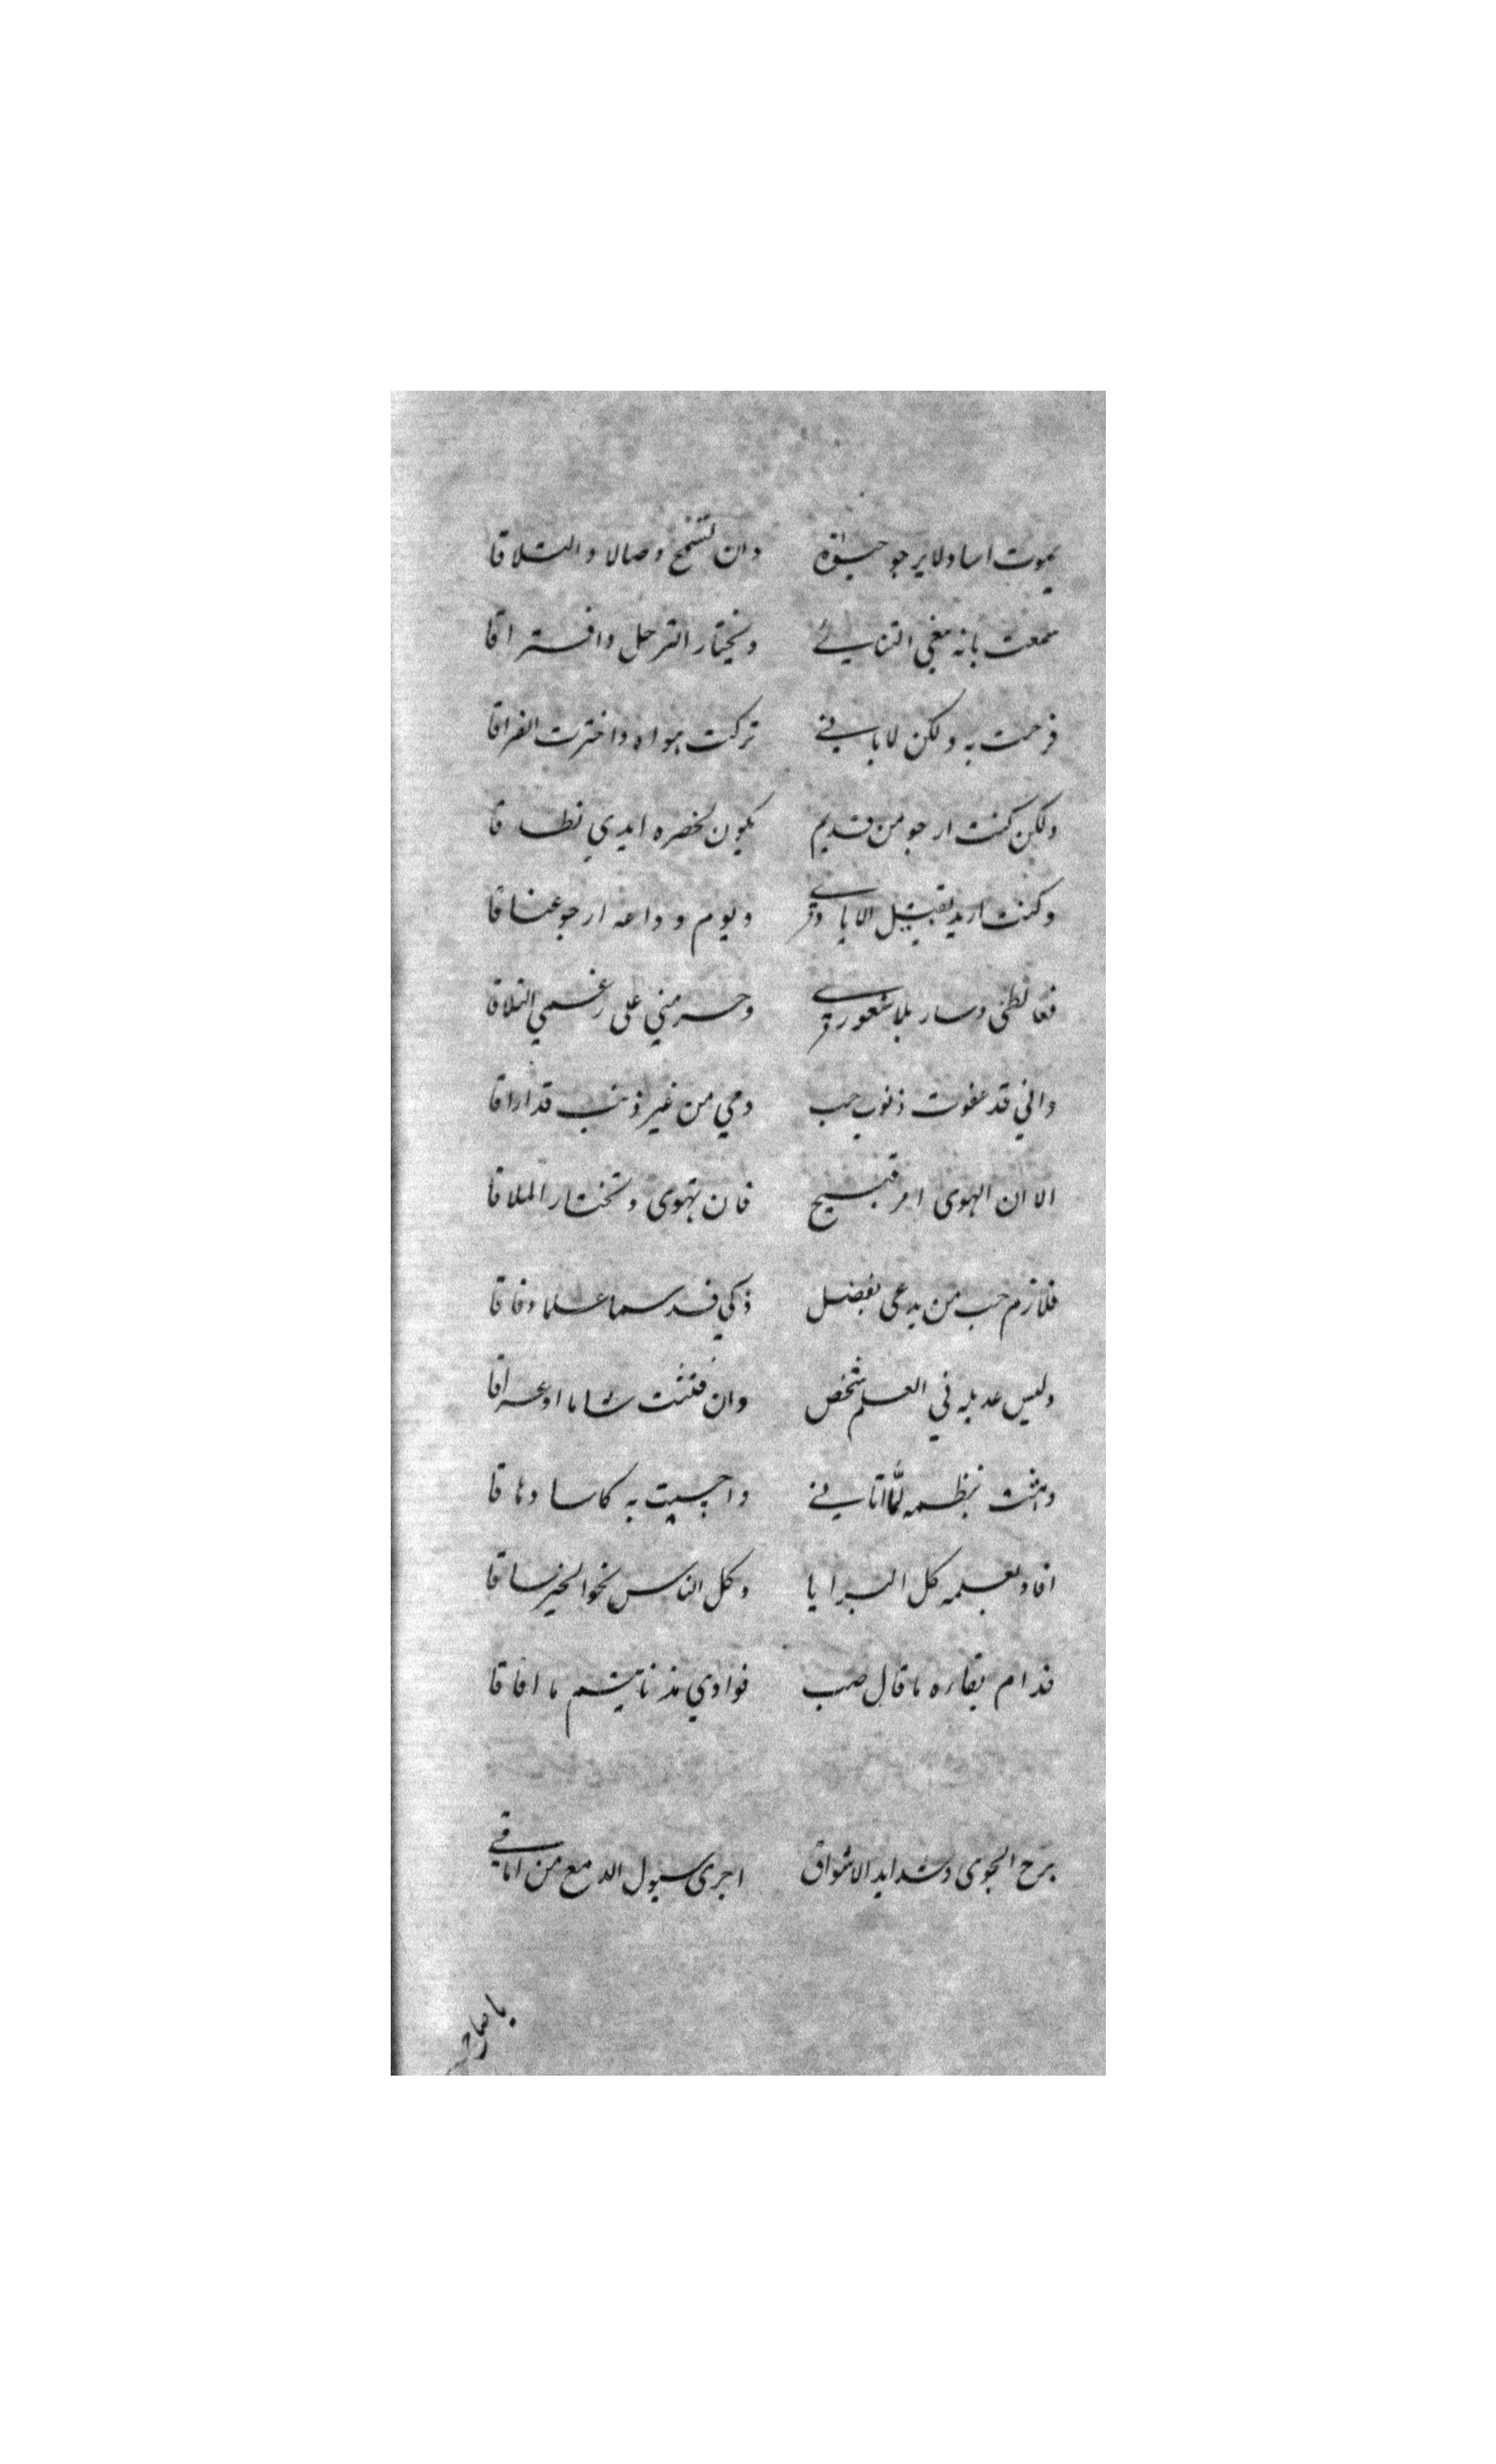 يموت اسا ولا يرجو حيوة وان تسمح وصالا والتلاقا
سمعت بانه يبغي التنائي ويختار الترحل وافتراقا
فرحت به ولكن لا باني تركت هواه واخترت الفراقا
ولكن كنت ارجو من قديم يكون لخصره ايدي نطاقا
وكنت اريد تقبيل الايادي ويوم وداعه ارجو عناقا
فغالطني وسار بلا شعوري وحرمني على رغمي التلاقا
واني قد عفوت ذنوب حب دمي من غير ذنب قد اراقا
الا ان الهوى امر قبيح فان تهوى وتختار الملاقا
فلازم حب من يدعى بفضل ذكي قد سما علما وفاقا
وليس عديله في العلم شخص وان فتشت شاما او عراقا
وهمت بنظمه لما اتاني واحسيت به كاسا دهاقا
افاد بعلمه كل البرايا وكل الناس نحو الخير ساقا
فدام بقاره ما قال صب فوادي مذ نايتم ما افاقا
برح الجوى وشدايد الاشواق اجرى سيول الدمع من اماقي
يا صاح